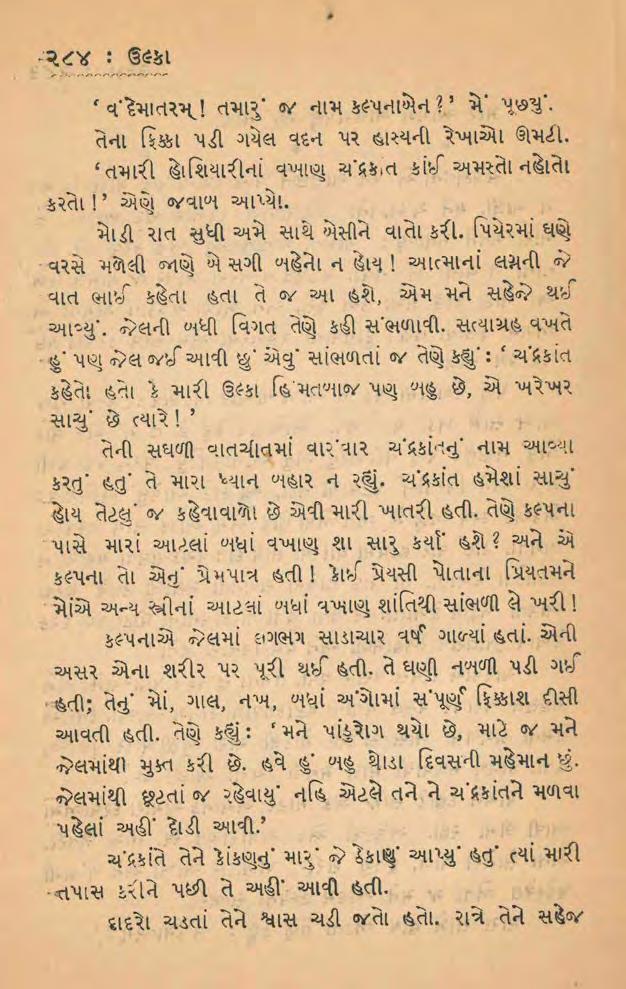 ૨૮૪ : ઉલ્કા
‘વંદેમાતરમ્! તમારું જ નામ કલ્પનાબેન?’ મેં પૂછ્યું.
તેના ફિક્કા પડી ગયેલ વદન પર હાસ્યની રેખાઓ ઊમટી.
‘તમારી હોશિયારીનાં વખાણ ચંદ્રકાંત કાંઈ અમસ્તો નહોતો
કરતો!’ એણે જવાબ આપ્યો.
મોડી રાત સુધી અમે સાથે બેસીને વાતો કરી. પિયેરમાં ઘણે
વરસે મળેલી જાણે બે સગી બહેનો ન હોય! આત્માનાં લગ્નની જે
વાત ભાઈ કહેતા હતા તે જ આ હશે, એમ મને સહેજે થઈ
આવ્યું. જેલની બધી વિગત તેણે કહી સંભળાવી. સત્યાગ્રહ વખતે
હું પણ જેલ જઈ આવી છું એવું સાંભળતાં જ તેણે કહ્યું : ‘ચંદ્રકાંત
કહેતો હતો કે મારી ઉલ્કા હિંમતબાજ પણ બહુ છે, એ ખરેખર
સાચું છે ત્યારે!’
તેની સઘળી વાતચીતમાં વારંવાર ચંદ્રકાંતનું નામ આવ્યા
કરતું હતું તે મારા ધ્યાન બહાર ન રહ્યું. ચંદ્રકાંત હમેશાં સાચું
હોય તેટલું જ કહેવાવાળો છે એવી મારી ખાતરી હતી. તેણે કલ્પના
પાસે મારાં આટલાં બધાં વખાણ શા સારુ કર્યાં હશે? અને એ
કલ્પના તો એનું પ્રેમપાત્ર હતી! કોઈ પ્રેયસી પોતાના પ્રિયતમને
મોંએ અન્ય સ્ત્રીનાં આટલાં બધાં વખાણ શાંતિથી સાંભળી લે ખરી!
કલ્પનાએ જેલમાં લગભગ સાડાચાર વર્ષ ગાળ્યાં હતાં. એની
અસર એના શરીર પર પૂરી થઈ હતી. તે ઘણી નબળી પડી ગઈ
હતી; તેનું મોં, ગાલ, નખ, બધાં અંગોમાં સંપૂર્ણ ફિક્કાશ દીસી
આવતી હતી. તેણે કહ્યું : ‘મને પાંડુરોગ થયો છે, માટે જ મને
જેલમાંથી મુક્ત કરી છે. હવે હું બહુ થોડા દિવસની મહેમાન છું.
જેલમાંથી છૂટતાં જ રહેવાયું નહિ એટલે તને ને ચંદ્રકાંતને મળવા
પહેલાં અહીં દોડી આવી.’
ચંદ્રકાંતે તેને કોંકણનું મારું જે ઠેકાણું આપ્યું હતું ત્યાં મારી
તપાસ કરીને પછી તે અહીં આવી હતી.
દાદરો ચડતાં તેને શ્વાસ ચડી જતો હતો. રાત્રે તેને સહેજ